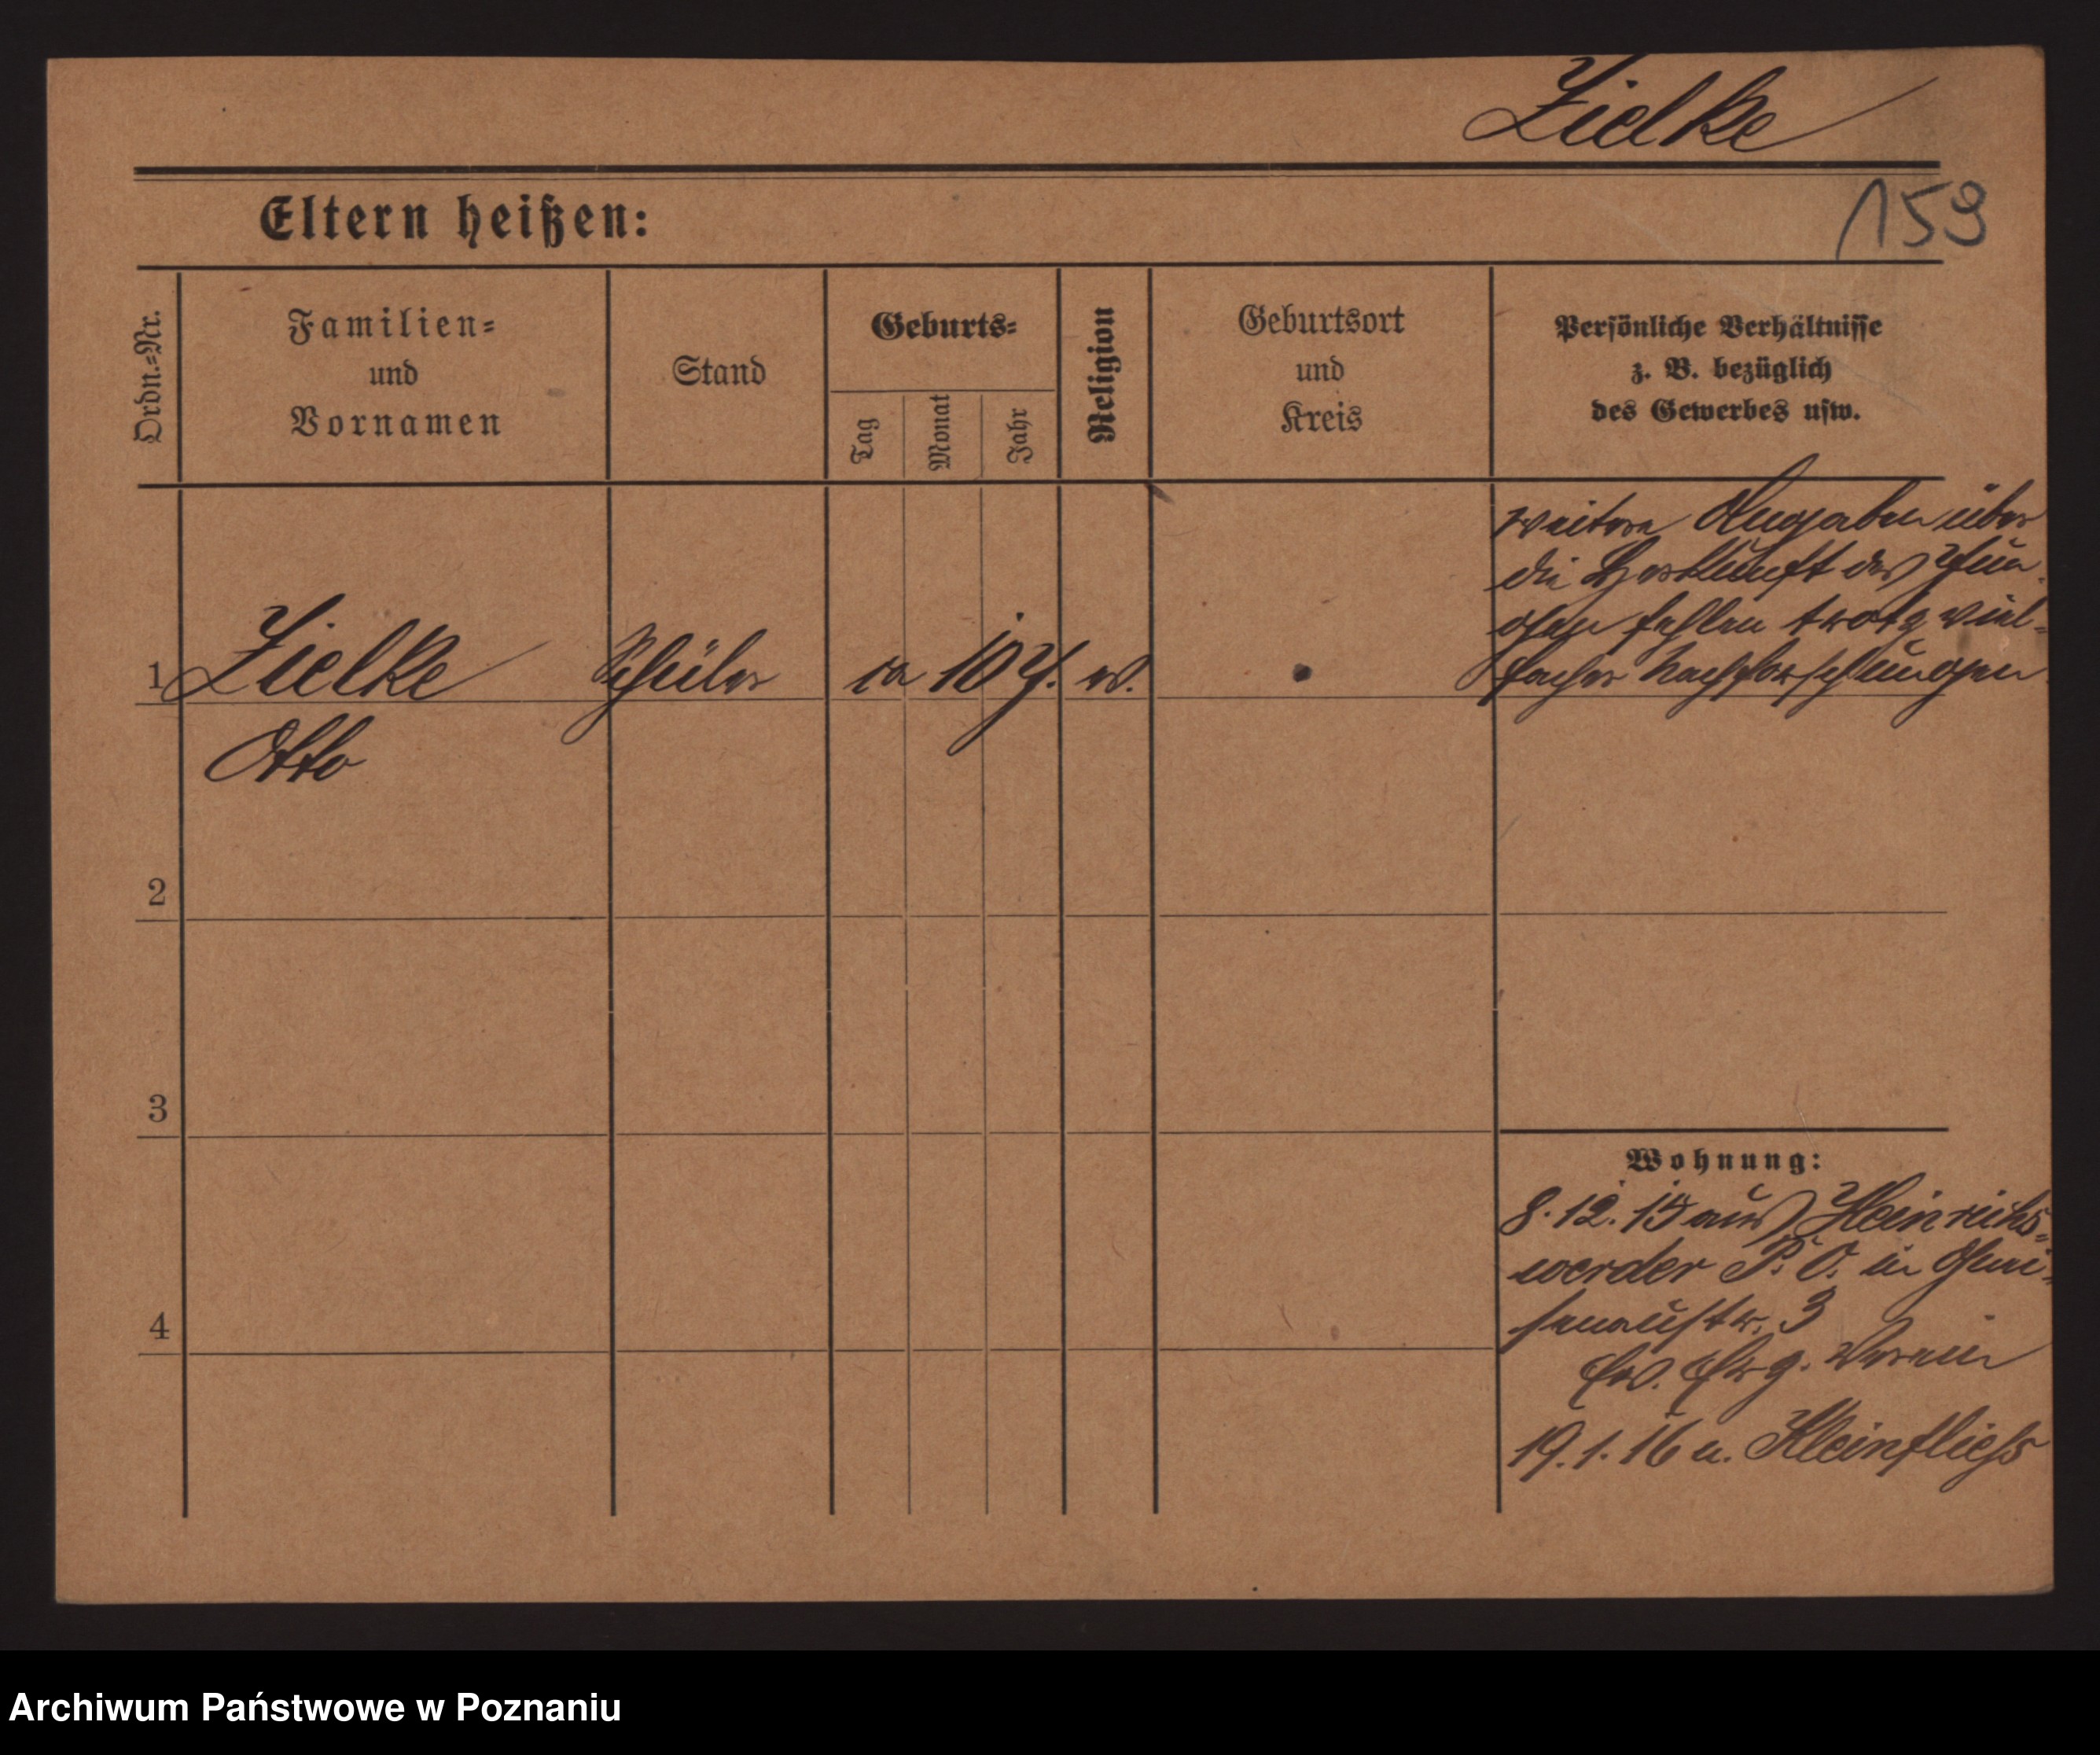 Zielke
159
Eltern heißen:
Ordn.-Nr.
Familien-
und
Vornamen
Stand
Geburts-
Tag
Monat
Jahr
Religion
Geburtsort
und
Kreis
Persönliche Verhältnisse
z. B. bezüglich
des Gewerbes usw.
weitere Angaben über
die Herkunft des Jun-
gen fehlen trotz viel-
facher Nachforschungen
1 Zielke Schüler ca 10 J. ev.
Otto
2
3
4
Wohnung:
8.12.15 aus Heinrichs-
werder P. O. in Gnei-
senaustr. 3
Ev. Erz. Verein
19.1.16 n. Kleinfliess
Archiwum Państwowe w Poznaniu